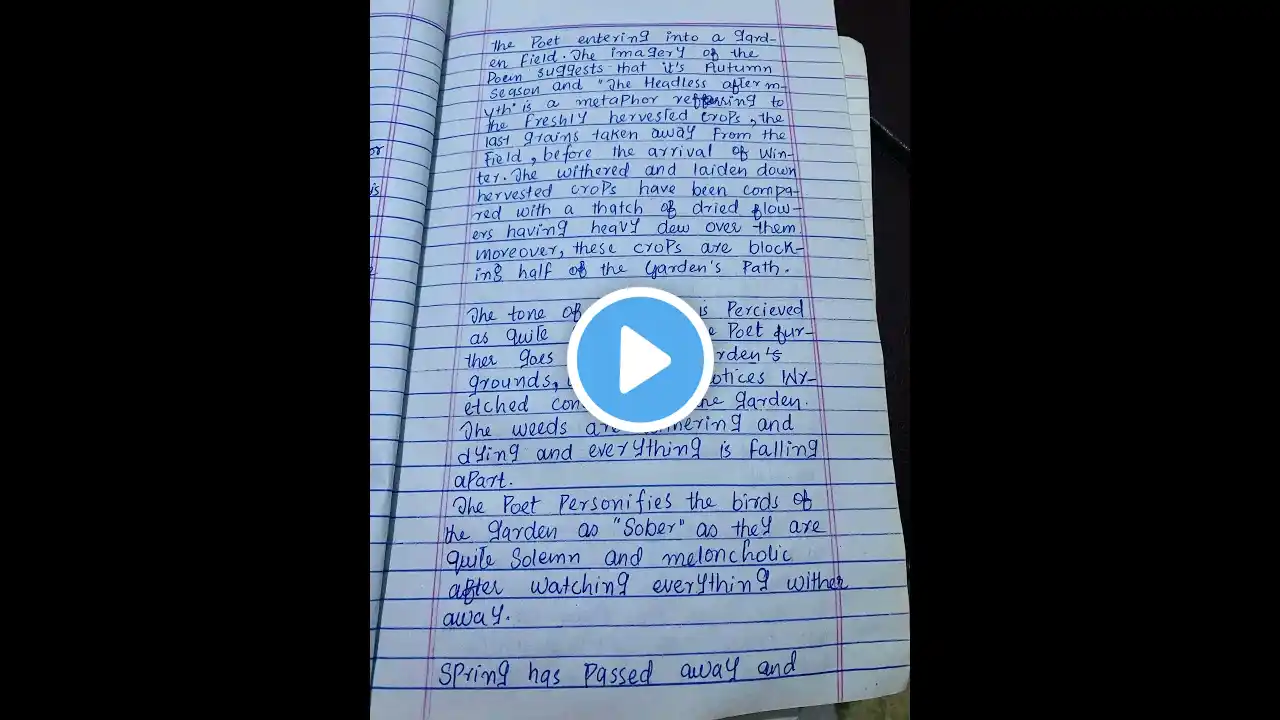 the Poet entering into a gard-
en Field. The imagery of the
Poem suggests that it's Autumn
season and "The Headless afterm-
yth" is a metaphor reffering to
the freshly hervested crops, the
last grains taken away from the
field, before the arrival of win-
ter. The withered and laiden down
hervested crops have been compa-
red with a thatch of dried flow-
ers having heavy dew over them
moreover, these crops are block-
ing half of the Garden's Path.
The tone of is Percieved
as quite Poet fur-
ther goes
grounds, Wr-
etched garden.
The weeds are and
dying and everything is falling
apart.
The Poet Personifies the birds of
the garden as "Sober" as they are
quite Solemn and meloncholic
after watching everything wither
away.
Spring has Passed away and